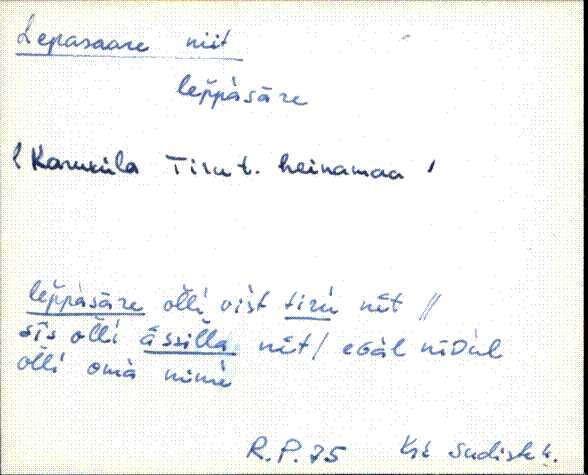 Lepasaare niit
lep̌pàsāre
Karuküla Tiru t. heinamaa
lep̌pàsāre oľľi vist tirù nīt //
sīs oľľi ässilla nīt / eGàl nīDùl
oľľi omà nimè
R.P. 75 Ksk Sudiste k.